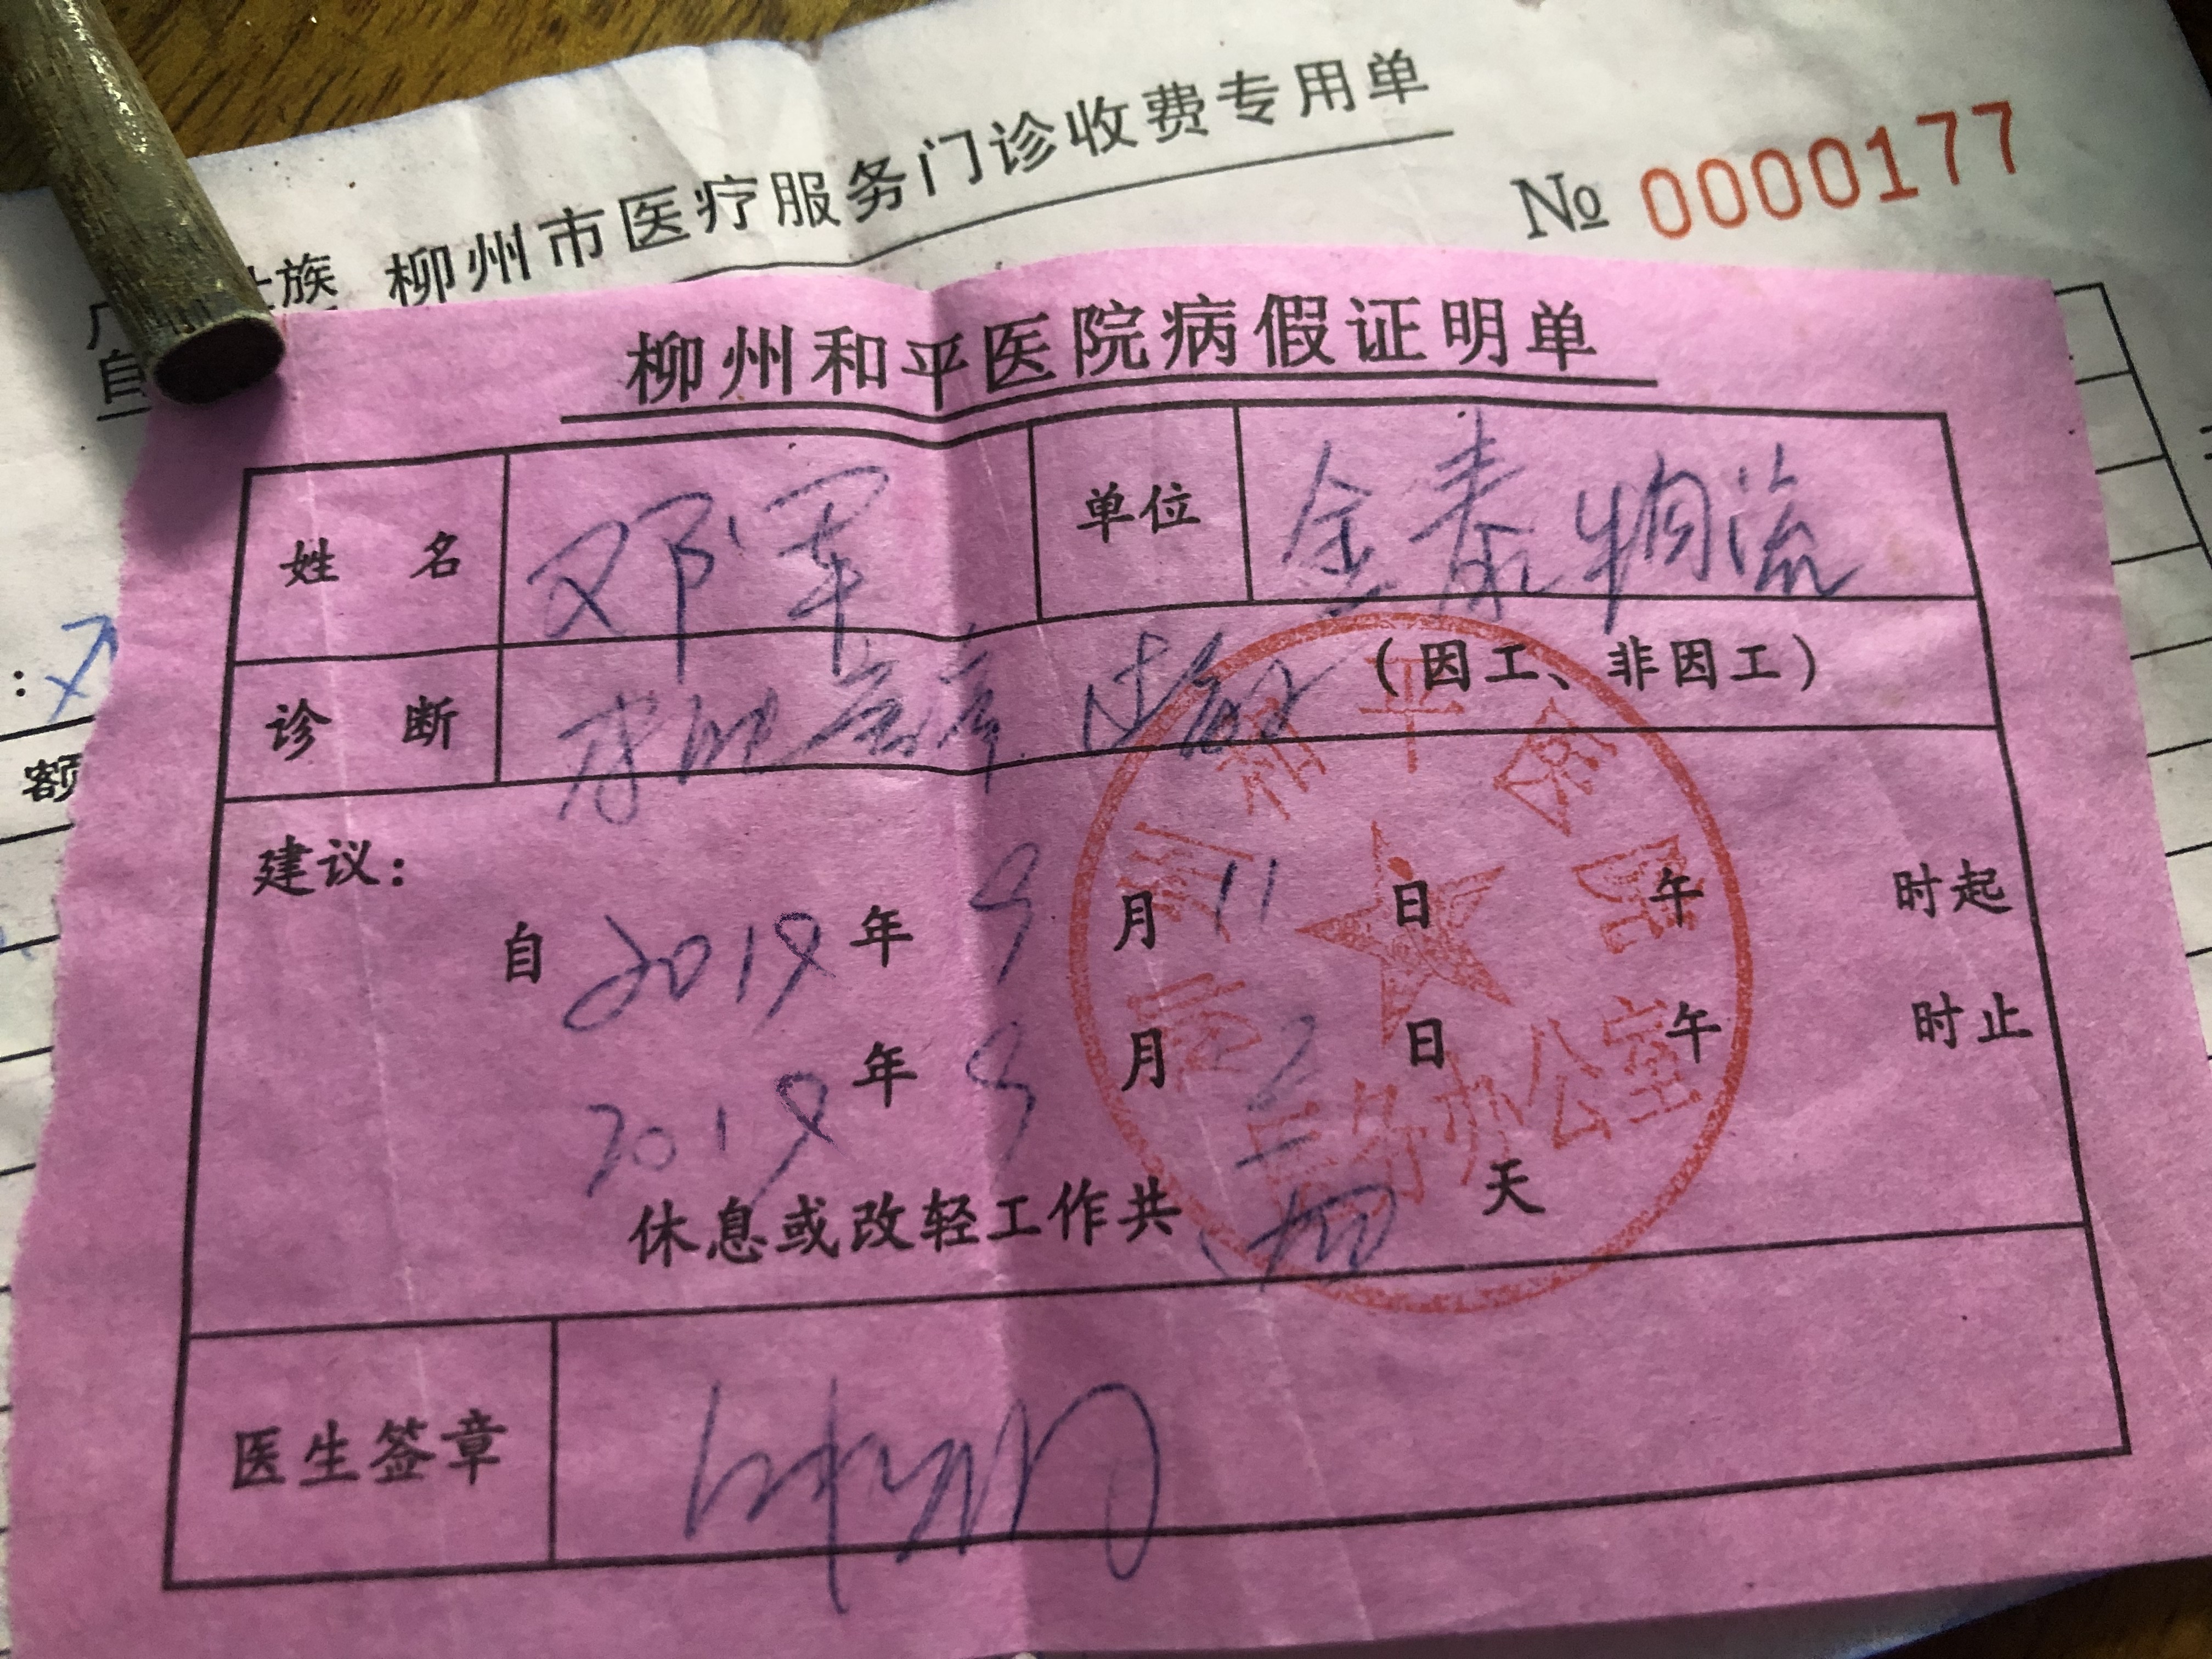 柳州市医疗服务门诊收费专用单
№ 0000177
族
自
柳州和平医院病假证明单
姓 名 邓军 单位 金泰物流
诊 断 过敏 (因工、非因工)
建议:
自 2019 年 9 月 11 日 午 时起
2019 年 9 月 日 午 时止
休息或改轻工作共 天
医生签章
额
州和平医院
医务办公室